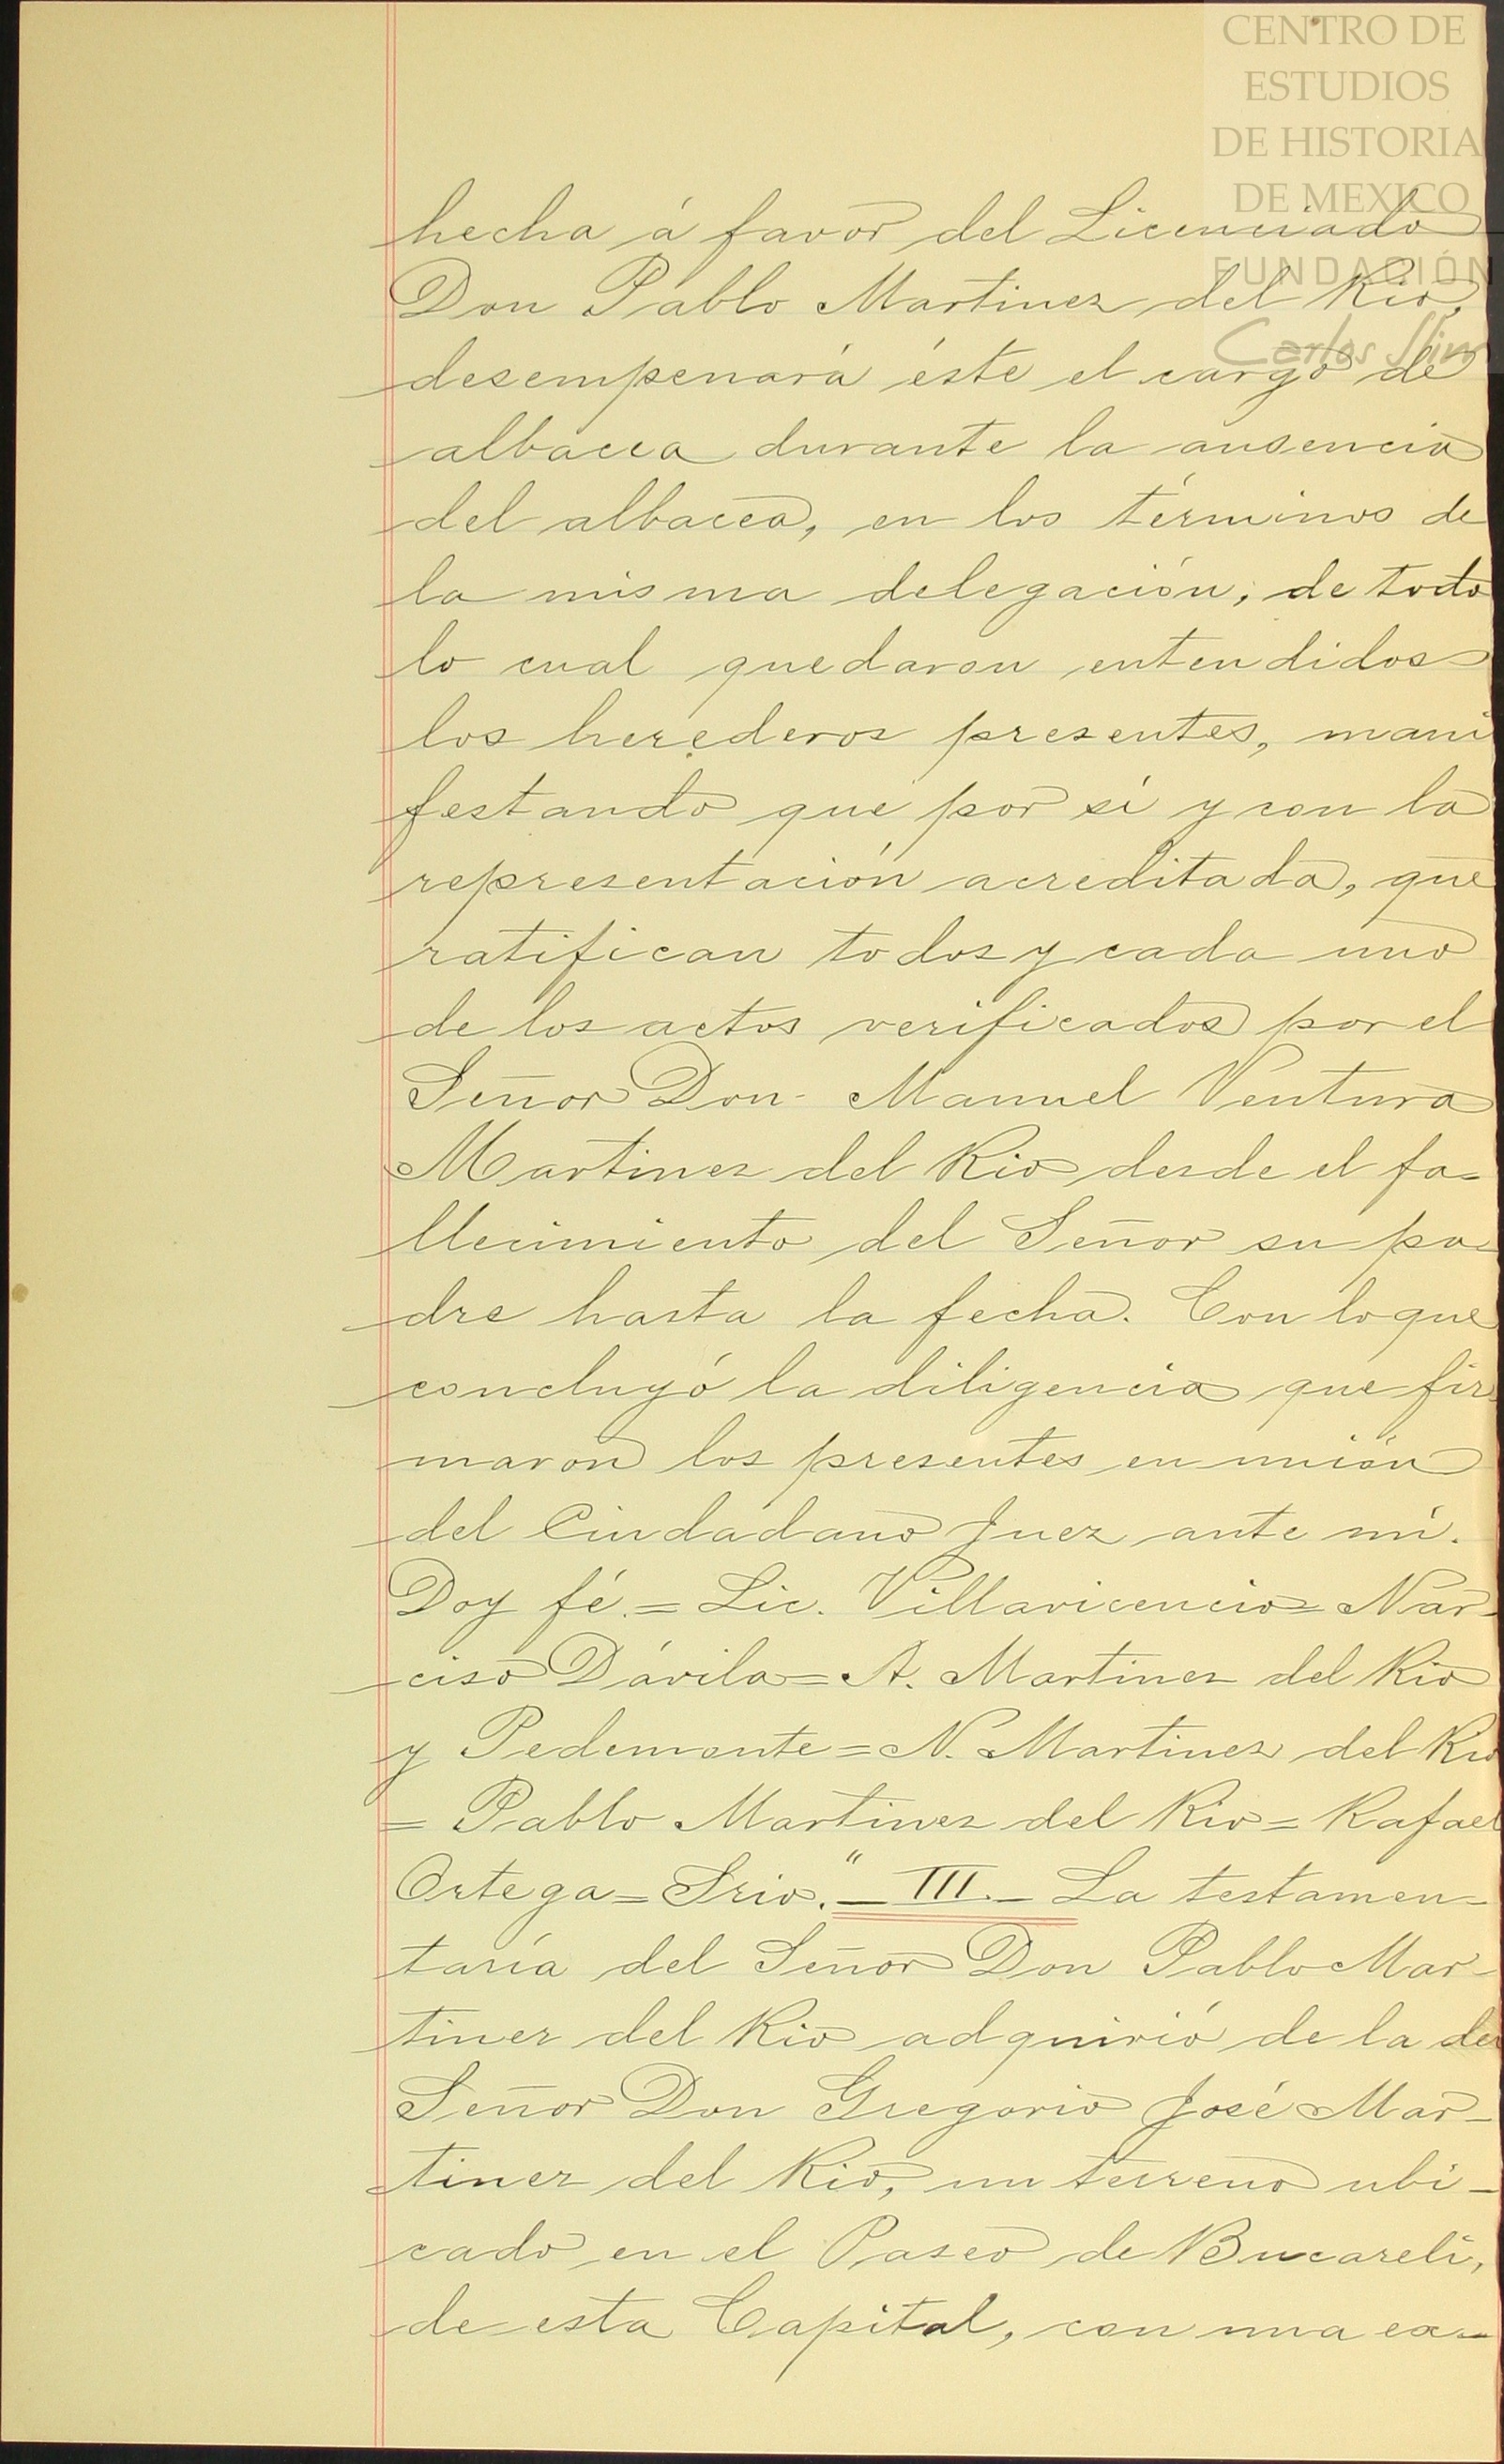 CENTRO DE
ESTUDIOS
DE HISTORIA
DE MEXICO
FUNDACIÓN
Carlos Slim
hecha á favor del Licenciado
Don Pablo Martinez del Rio,
desempenará éste el cargo de
albacea durante la ausencia
del albacea, en los términos de
la misma delegación; de todo
lo cual quedaron entendidos
los herederos presentes, mani
festando que por sí y con la
representación acreditada, que
ratifican todos y cada uno
de los actos verificados por el
Señor Don Manuel Ventura
Martinez del Rio desde el fa=
llecimiento del Señor su pa-
dre hasta la fecha. Con lo que
concluyó la diligencia que fir
maron los presentes en unión
del Ciudadano Juez ante mí.
Doy fé.= Lic. Villavicencio= Nar-
ciso Dávila= A. Martinez del Rio
y Pedemonte= N. Martinez del Rio
= Pablo Martinez del Rio= Rafael
Ortega= Srio."— III.— La testamen=
taría del Señor Don Pablo Mar-
tinez del Rio adquirió de la del
Señor Don Gregorio José Mar-
tinez del Rio, un terreno ubi-
cado en el Paseo de Bucareli,
de esta Capital, con una ca=